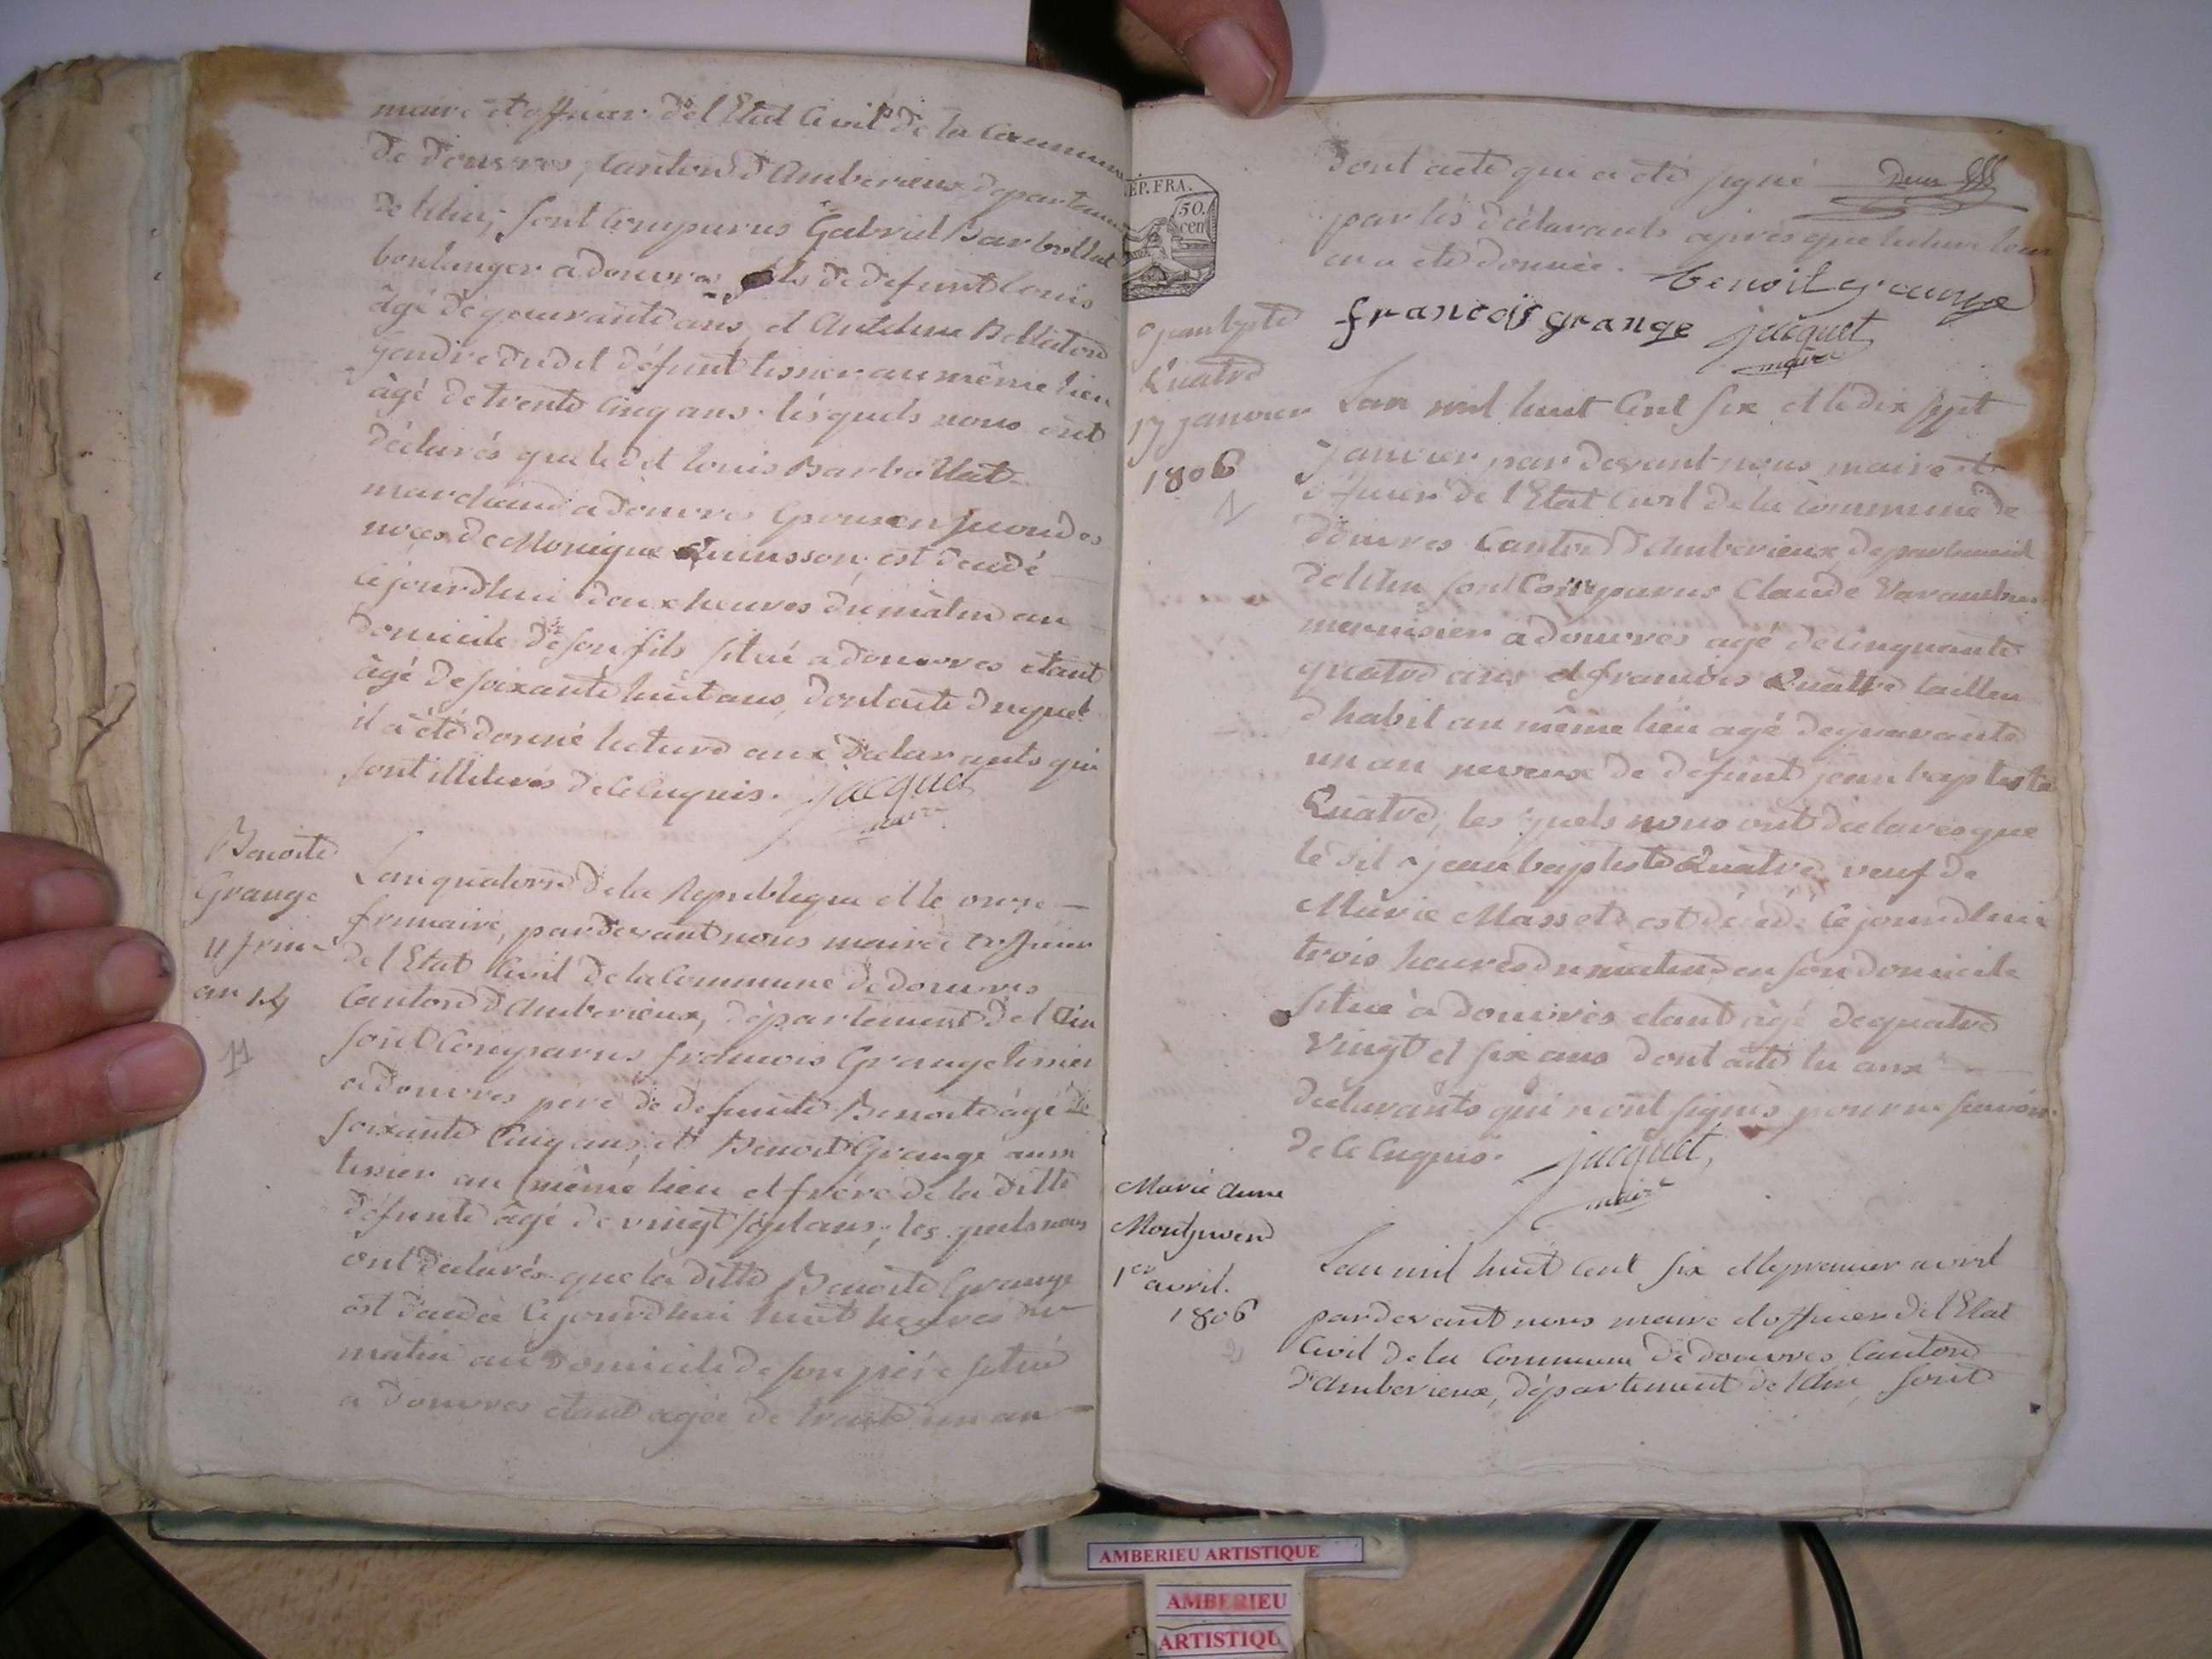 maire et officier de l'Etat Civil de la Commune
de douvres, Canton d'Amberieux departement
de l'Ain, sont Comparus Gabriel Barbollat
boulanger a douvres fils de defunt Louis
âgé de quarante ans, et Antelme Bellaton
gendre dudit défunt tissier au même lieu
âgé de trente Cinq ans. lesquels nous ont
déclarés que le dit Louis Barbollat
marchand a douvres Epoux en secondes
noces de Monique Quinsson est décédé
Cejourd'hui deux heures du matin au
domicile de son fils situé a douvres etant
âgé de soixante huit ans, dont acte duquel
il a été donné lecture aux déclarants qui
sont illiterés de ce enquis. jacquet
maire
Benoite
Grange
11 frim
an 14
11
L'an quatorze de la Republique et le onze
frimaire, pardevant nous maire et officier
de l'Etat Civil de la Commune de douvres
Canton d'Amberieux, département de l'Ain
sont Comparus francois Grange tissier
a douvres père de defunte Benoite âgé de
soixante Cinq ans, et Benoit Grange aussi
tissier au même lieu et frère de la ditte
défunte âgé de vingt sept ans, les quels nous
ont déclarés que la ditte Benoite Grange
est décédée Cejourd'hui huit heures du
matin au domicile de son père situé
a douvres etant agée de trente un an
REP. FRA.
50.
cen
dont acte qui a été signé
par les déclarants après que lecture leur
en a été donnée. benoit grange
francois grange jacquet
maire
jean bpte
Quatre
17 janvier
1806
1
L'an mil huit Cent six et le dix sept
janvier par devant nous maire et
officier de l'Etat Civil de la Commune de
douvres Canton d'Amberieux, departement
de l'Ain sont Comparus Claude Varambon
menuisier a douvres agé de Cinquante
quatre ans et francois Quatre tailleur
d'habit au même lieu agé de quarante
un an neveux de defunt jean baptiste
Quatre, les quels nous ont déclarés que
le dit jean baptiste Quatre veuf de
Marie Massot est décédé Cejourd'hui
trois heures du matin en son domicile
situé à douvres etant âgé de quatre
vingt et six ans dont acte lu aux
déclarants qui n'ont signés pour ne savoir
de ce enquis. jacquet,
maire
Marie Anne
Montjuvend
1er avril.
1806
2
L'an mil huit Cent six et le premier avril
pardevant nous maire et officier de l'Etat
Civil de la Commune de douvres Canton
d'Amberieux, département de l'Ain, sont
AMBERIEU ARTISTIQUE
AMBERIEU
ARTISTIQU